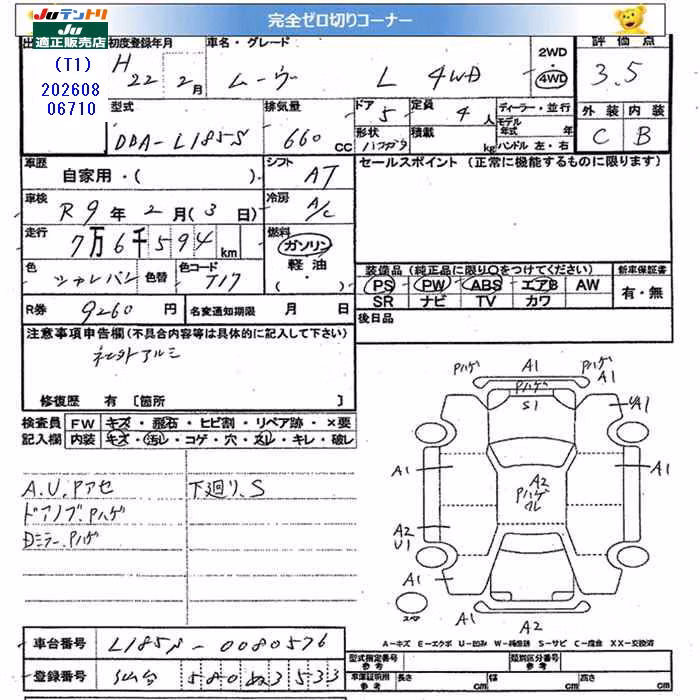 JUテントリ
JU
適正販売店
完全ゼロ切りコーナー
(T1)
202608
06710
初度登録年月
H 22年 2月
車名・グレード
ムーヴ L 4WD
2WD
4WD
評価点
3.5
型式
DBA-L185S
排気量
660 CC
ドア 5
形状
定員 4人
積載 kg
ディーラー・並行
モデル年式 年
ハンドル 左・右
外装 内装
C B
車歴
自家用・( )
シフト
AT
セールスポイント (正常に機能するものに限ります)
車検
R 9年 2月(3日)
冷房
A/C
走行
7万6千594km
燃料
ガソリン
軽油
( )
色
色替
色コード
T17
装備品(純正品に限り○をつけてください)
新車保証書
PS PW ABS エアB AW
有・無
SR ナビ TV カワ
R券 9260円
名変通知期限 月 日
後日品
注意事項申告欄(不具合内容等は具体的に記入して下さい)
社外アルミ
修復歴 有 [箇所 ]
検査員
記入欄
FW キズ・飛石・ヒビ割・リペア跡・×要
内装 キズ・汚れ・コゲ・穴・スレ・キレ・破レ
A.U.Pアセ
下廻り.S
ドアノブ.Pハゲ
Dミラー.Pハゲ
Pハゲ A1 Pハゲ
A1
Pハゲ
S1
UA1
A1
A1
A2
Pハゲ
A2
U1
A1
スペア
A1
A2
A-キズ E-エクボ U-凹み W-補修跡 S-サビ C-腐食 XX-交換済
車台番号 L185S-0080576
登録番号 仙台 580 ぬ 3533
型式指定番号
参考
類別区分番号
参考
車庫証明用
参考
長さ cm 幅 cm 高さ cm